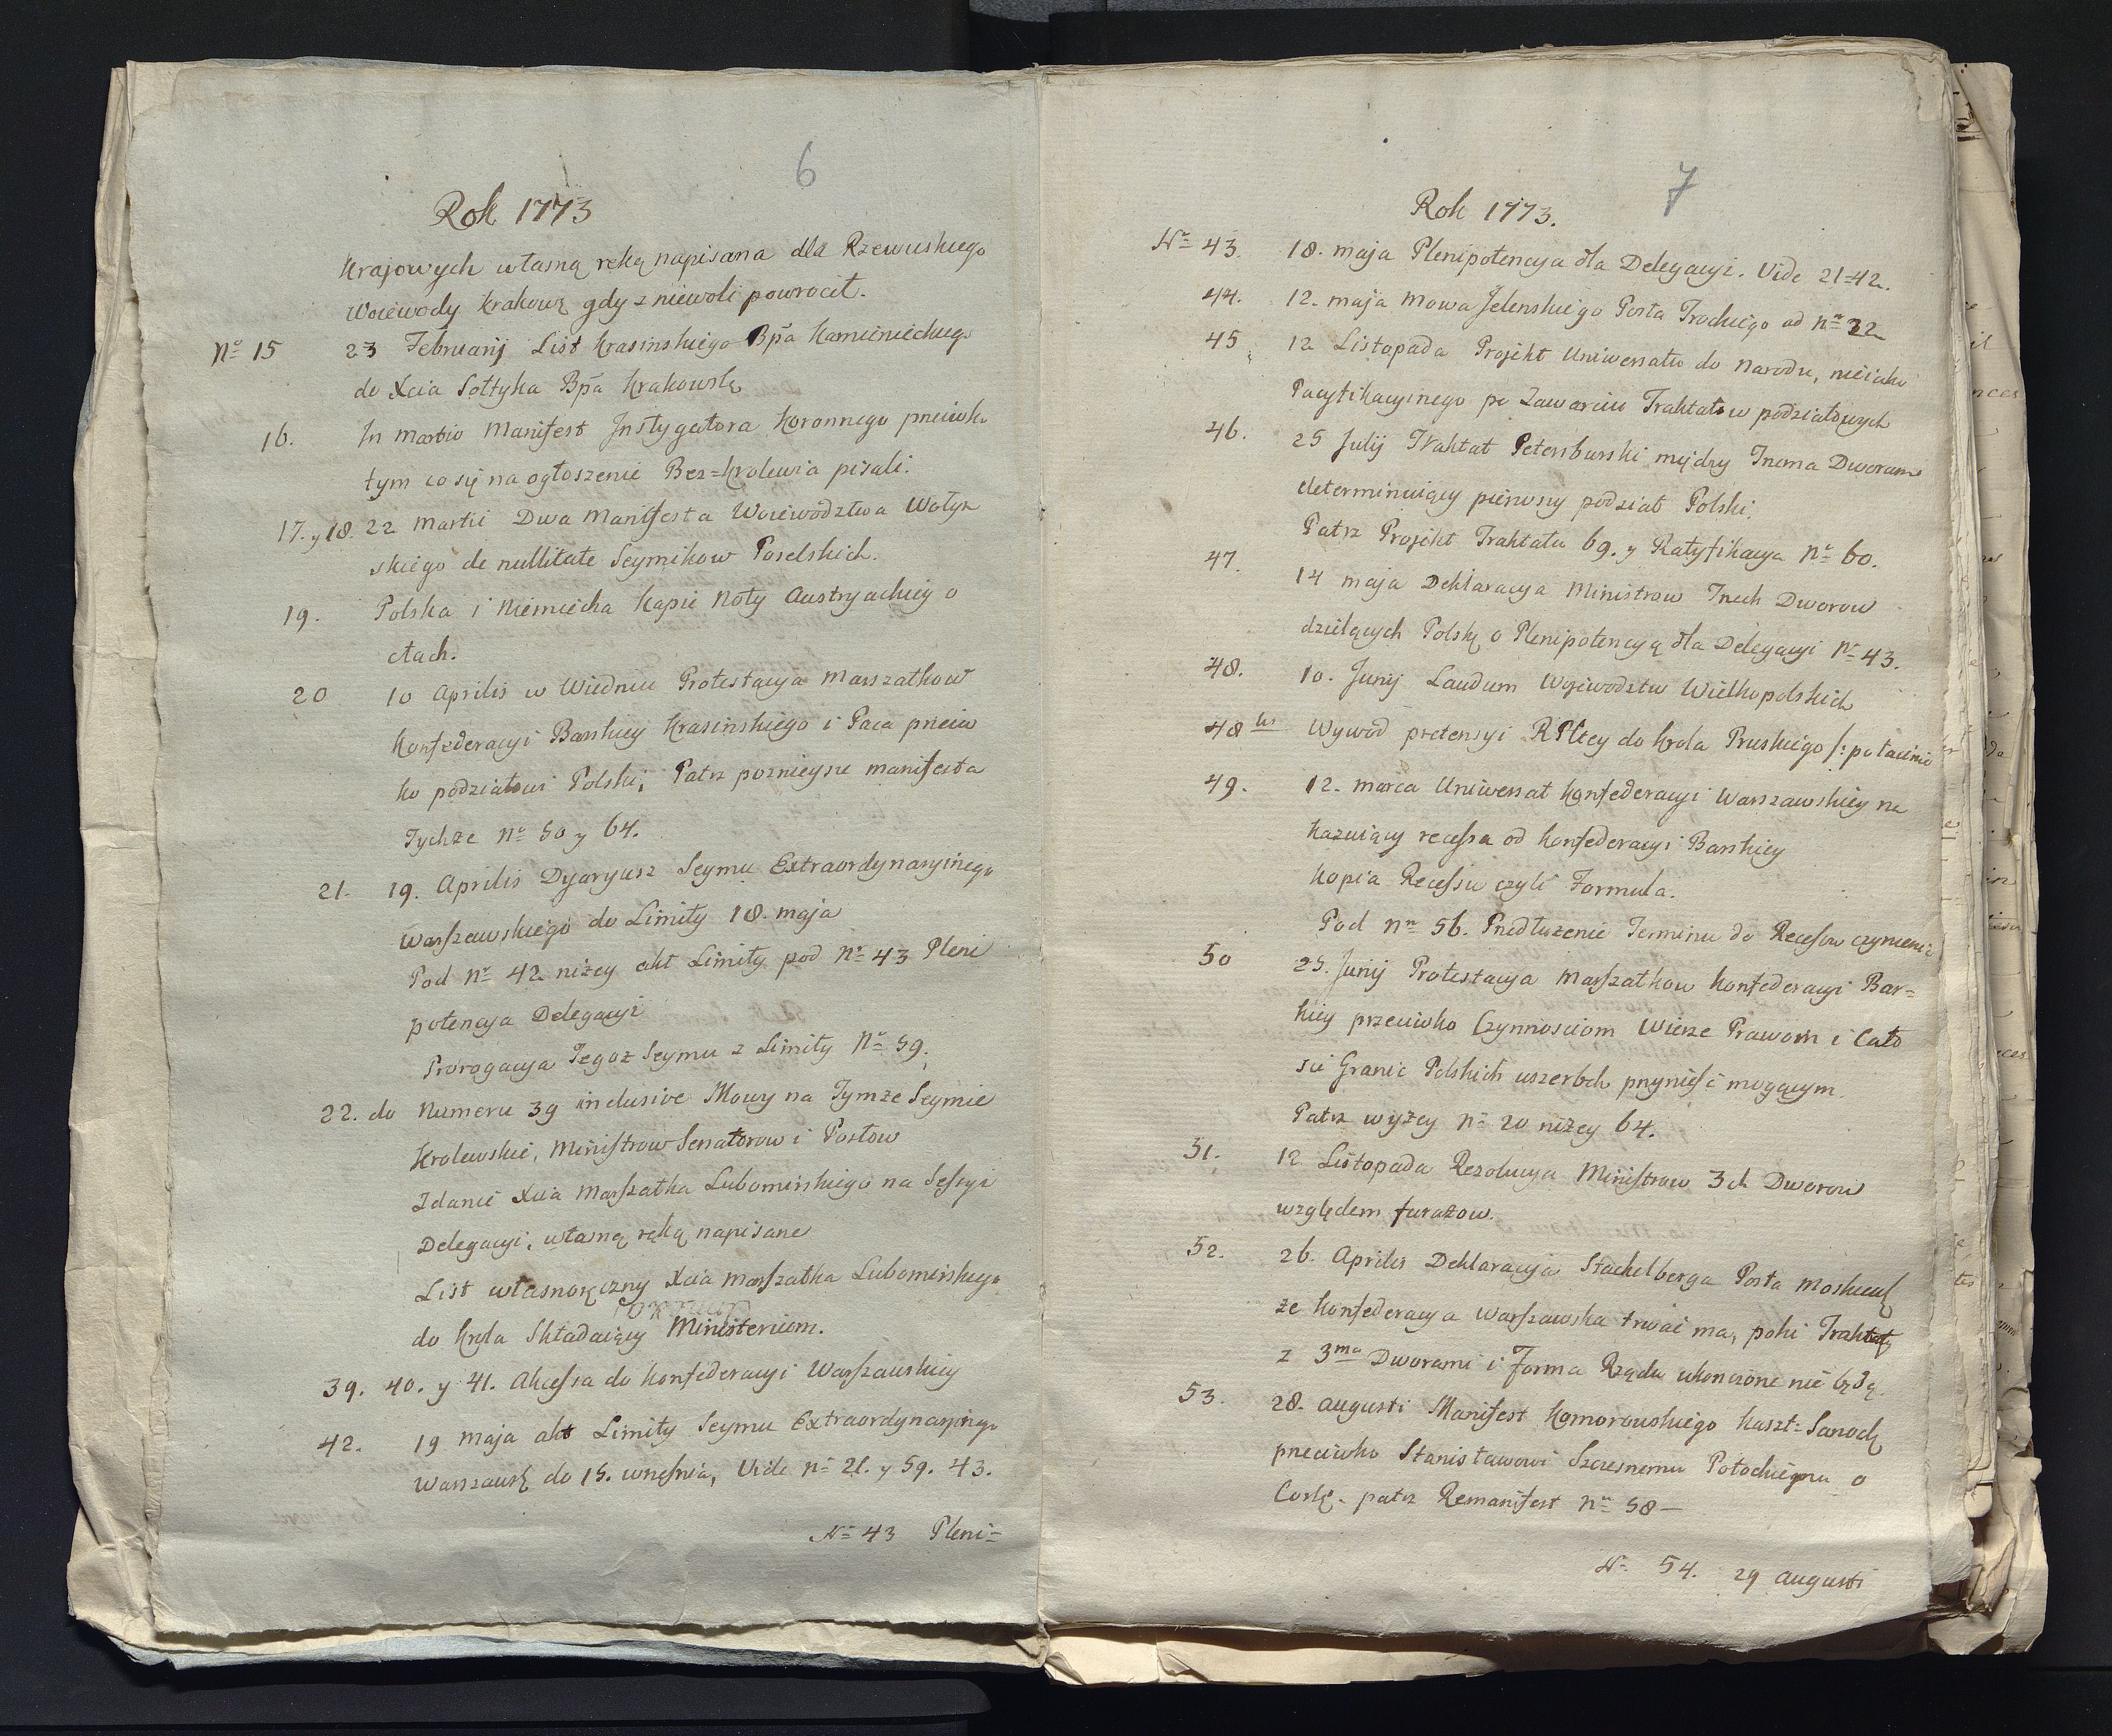 6
Rok 1773
Krajowych własną ręką napisana dla Rzewuskiego
Woiewody Krakowz gdy z niewoli powrocił.
No 15 23 Februarij List Krasinskiego Bpa Kamienieckieg
do Xcia Sołtyka Bpa Krakowsk
16. In martio Manifest Instygatora Koronnego przeciwk
tym co się na ogłoszenie Bez=krolewia pisali.
17. y 18. 22 Martii Dwa Manifesta Woiewodztwa Wołyn
skiego de nullitate Seymikow Poselskich.
19. Polska i Niemiecka Kopie Noty Austryackiey o
cłach.
20 10 Aprilis w Wiedniu Protestacya Marszałkow
Konfederacyi Barskiey Krasinskiego i Paca przeciw
ko podziałowi Polski, Patrz poznieysze manifesta
Tychże No 50 y 64.
21. 19. Aprilis Dyaryusz Seymu Extraordynaryinego
Warszawskiego do Limity 18. maja
Pod No 42 niżey akt Limity pod No 43 Pleni
potencya Delegacyi
Prorogacya Tegoż Seymu z Limity No 59.
22. do Numeru 39 inclusive Mowy na Tymże Seymie
Krolewskie, Ministrow Senatorow i Posłow
Zdanie Xcia Marszałka Lubomirskiego na Sessyi
Delegacyi, własną ręką napisane
List własnoręczny Xcia Marszałka Lubomirskiego
do Krola Składaiący Ministerium.
39. 40. y 41. Akcessa do Konfederacyi Warszawskiey
42. 19 Maja akt Limity Seymu Extraordynaryinego
Warszawsk do 15. września, Vide No 21. y 59. 43.
No 43 Pleni=
7
Rok 1773.
No 43. 18. maja Plenipotencya dla Delegacyi. Vide 21=42.
44. 12. maja Mowa Jelenskiego Posła Trockiego ad No 32
45. 12 Listopada Projekt Uniwersału do Narodu, nieiako
Pacyfikacyinego po Zawarciu Traktatow podziałowych
46. 25 Julij Traktat Petersburski między Trzema Dworam
determinuiący pierwszy podział Polski.
Patrz Projekt Traktatu 69. y Ratyfikacya No 60.
47. 14 maja Deklaracya Ministrow Trzech Dworow
dzielących Polskę o Plenipotencyą dla Delegacyi No 43.
48. 10. Junij Laudum Wojewodztw Wielkopolskich
48 bis Wywod pretensyi RPltey do Krola Pruskiego /: po łacinie
49. 12. marca Uniwersał Konfederacyi Warszawskiey na
kazuiący recessa od Konfederacyi Barskiey
Kopia Recessu czyli Formuła.
Pod No 56. Przedłużenie Terminu do Recessow czynienia
50 25. Junij Protestacya Marszałkow Konfederacyi Bar=
kiey przeciwko Czynnosciom Wierze Prawom i Cało
sci Granic Polskich uszerbek przynieść mogącym.
Patrz wyżey No 20 niżey 64.
51. 12. Listopada Rezolucya Ministrow 3ch Dworow
względem furażow.
52. 26. Aprilis Deklaracya Stackelberga Posła Moskiewsk
że Konfederacya Warszawska trwać ma, poki Traktaty
z 3ma Dworami i Forma Rządu ukończone nie będą.
53. 28. Augusti Manifest Komorowskiego Kaszt: Sanock
przeciwko Stanisławowi Szczesnemu Potockiemu o
Corkę. patrz Remanifest No 58 —
No 54. 29 Augusti